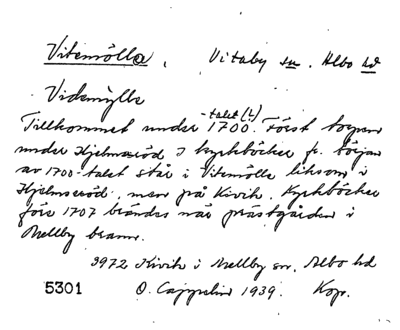 Vitemölla, Vitaby sn. Albo hd
Videmylle
Tillkommet under 1700-talet (?). Först torpen
under Hjelmseröd. I kyrkböcker fr. början
av 1700-talet står i Vitemölle liksom i
Hjelmseröd, men på Kivik. Kyrkböcker
före 1707 brändes när prästgården i
Mellby brann.
3972 Kivik i Mellby sn. Albo hd
5301 O. Cappelin 1939. Kop.